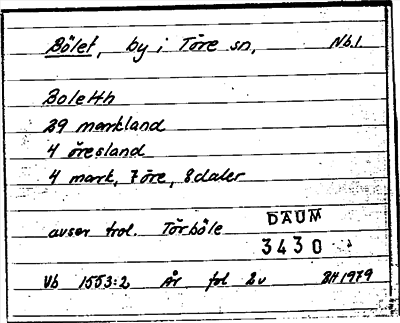 Bölet, by i Töre sn, Nb.1
Boletth
29 markland
4 öresland
4 mark, 7 öre, 8 daler
avser trol. Törböle
DAUM
3430
Vb 1553:2 År fol 2v BH 1979